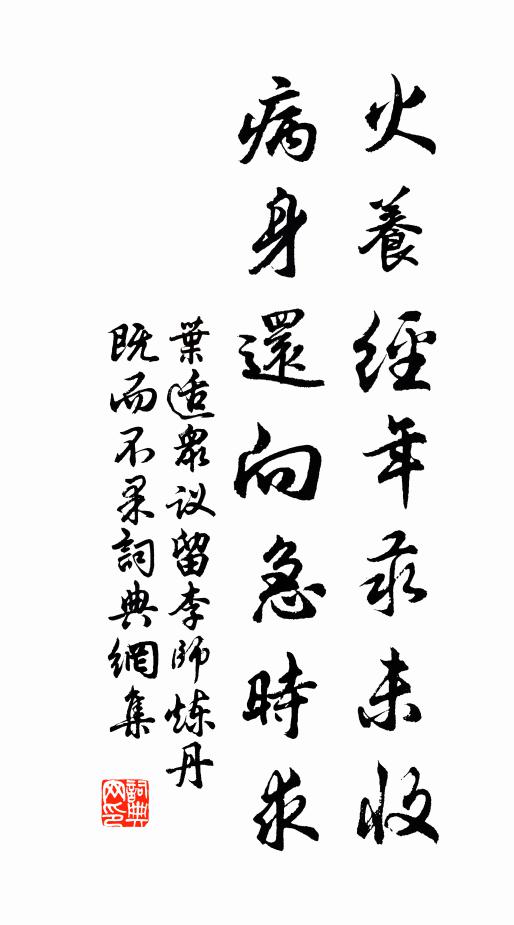 火養經年亦未收
病身還向急時求
葉适眾议留李师炼丹
既而不果詞典網集
詞典网印